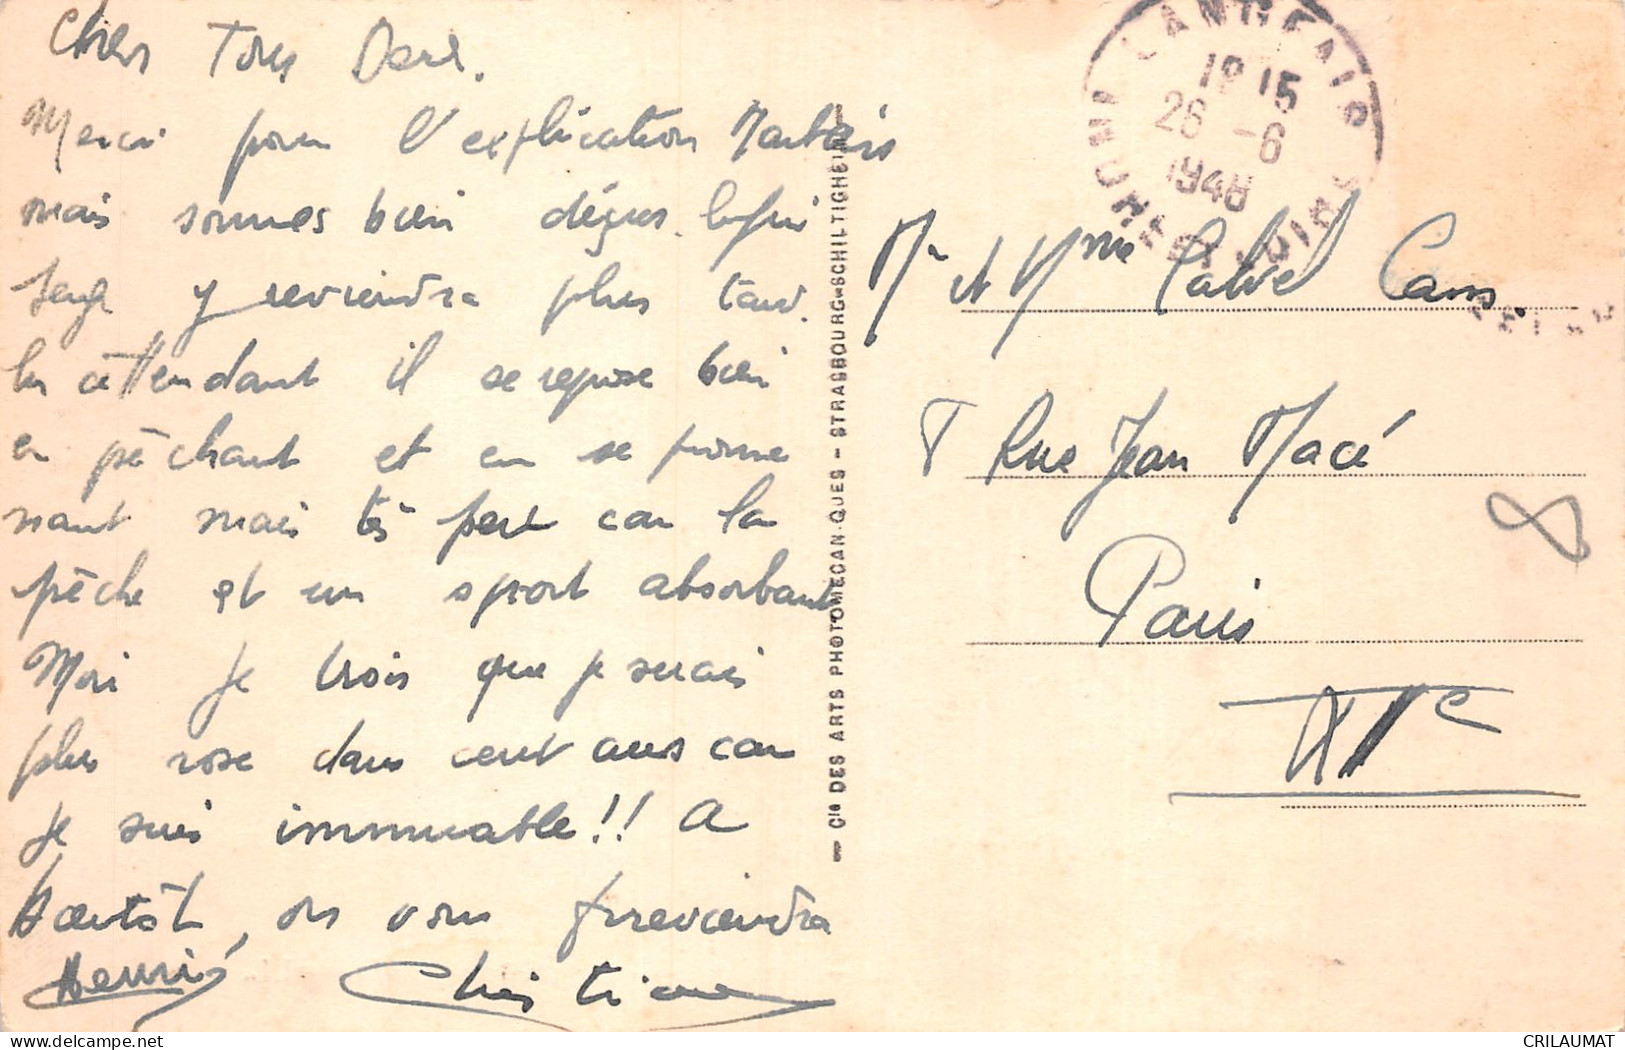 Chers Tous Deux.
Merci pour l'explication
mais sommes bien déçus.
Serge y reviendra plus tard.
En attendant il se repose bien
en pêchant et en se prome
nant mais très peu car la
pêche est un sport absorbant
Moi je crois que je serais
plus rose dans cent ans car
je suis immuable!! A
bientôt, on vous préviendra
Henri Christiane
LANGEAIS
INDRE ET LOIRE
18 15
26 -6
1948
Mr et Mme Calvel
8 Rue Jean Macé
Paris
XIe
8
Cie DES ARTS PHOTOMECANIQUES - STRASBOURG-SCHILTIGHEIM
delcampe.net
CRILAUMAT